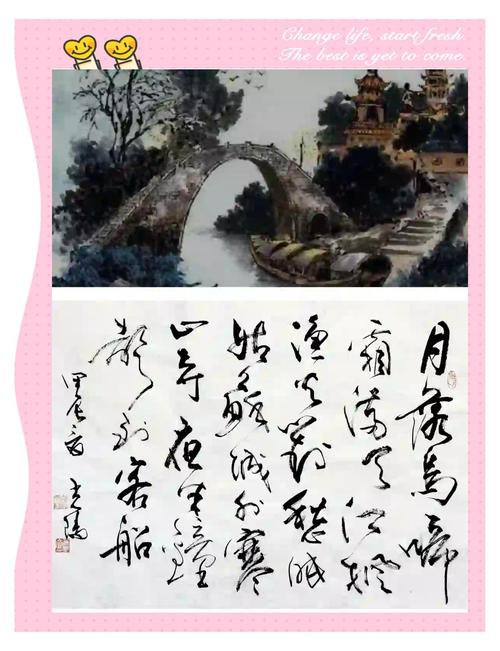 Change life, start fresh.
The best is yet to come.
月落烏啼
霜滿天江楓
漁火對愁眠
姑蘇城外寒
山寺夜半鐘
聲到客船
甲辰